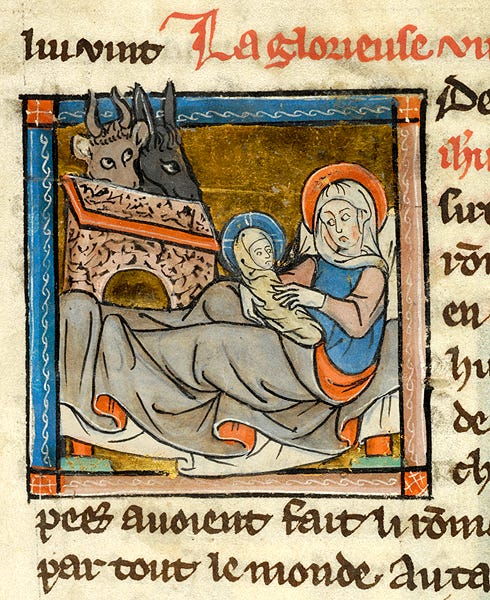 liu vint La glorieuse vi
De
ihu
rōm
en
hu
de
ch
pees avoient fait li rōm
par tout le monde Auta